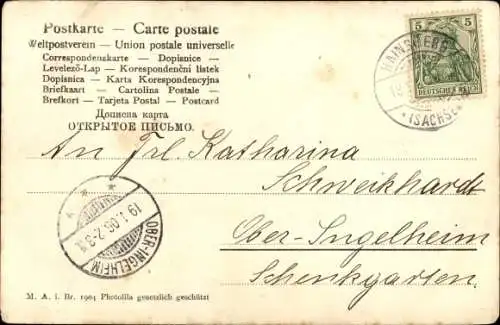 Postkarte — Carte postale
Weltpostverein — Union postale universelle
Correspondenzkarte — Dopisnice —
Levelező-Lap — Korespondenční lístek
Dopisnica — Karta Korespondencyjna
Briefkaart — Cartolina Postale —
Brefkort — Tarjeta Postal — Postcard
Дописна карта
ОТКРЫТОЕ ПИСЬМО.
5 5
DEUTSCHES REICH
HAINSBERG
(SACHSE
An Frl. Katharina
Schweikhardt
Ober-Ingelheim
Schenkgarten.
19.1.05.2-3
OBER-INGELHEIM
M. A. i. Br. 1904 Photolila gesetzlich geschützt